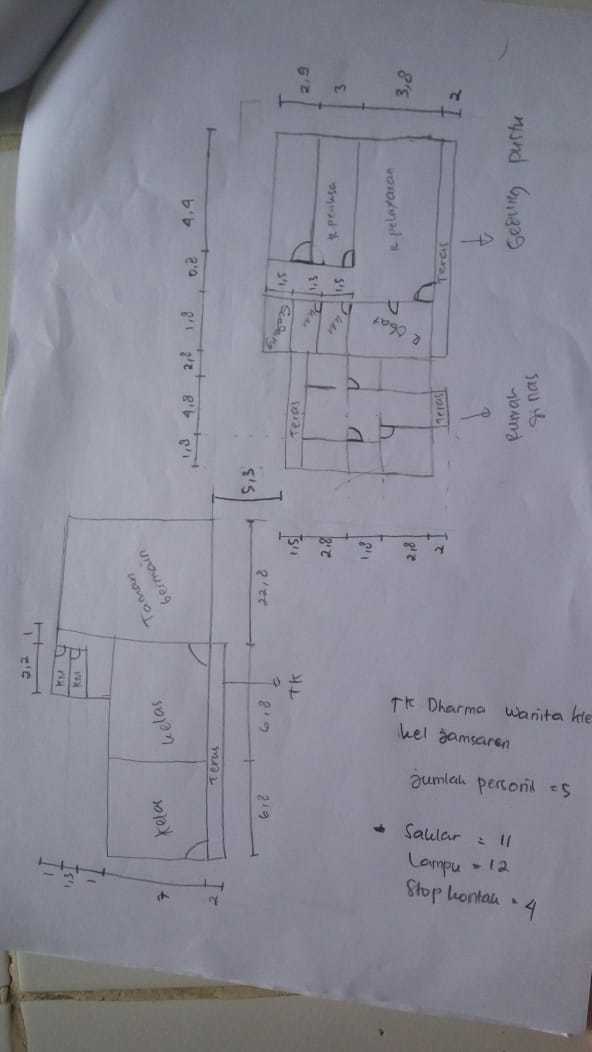 2,9
3
3,8
2
4,4
0,8
1,8
2,8
4,8
1,8
R periksa
R pelayanan
Teras
1,5
1,3
1,5
Gudang
R
Obat
Gedung pustu
Teras
Teras
Rumah
dinas
5,3
1,5
2,8
1,8
2,8
2
Taman
bermain
22,8
1
2,2
KM
KM
Kelas
Kelas
Teras
TK
6,8
6,8
1
1,3
1
7
2
TK Dharma Wanita
kel Jamsaren
jumlah personil = 5
Saklar = 11
Lampu = 12
Stop kontak = 4